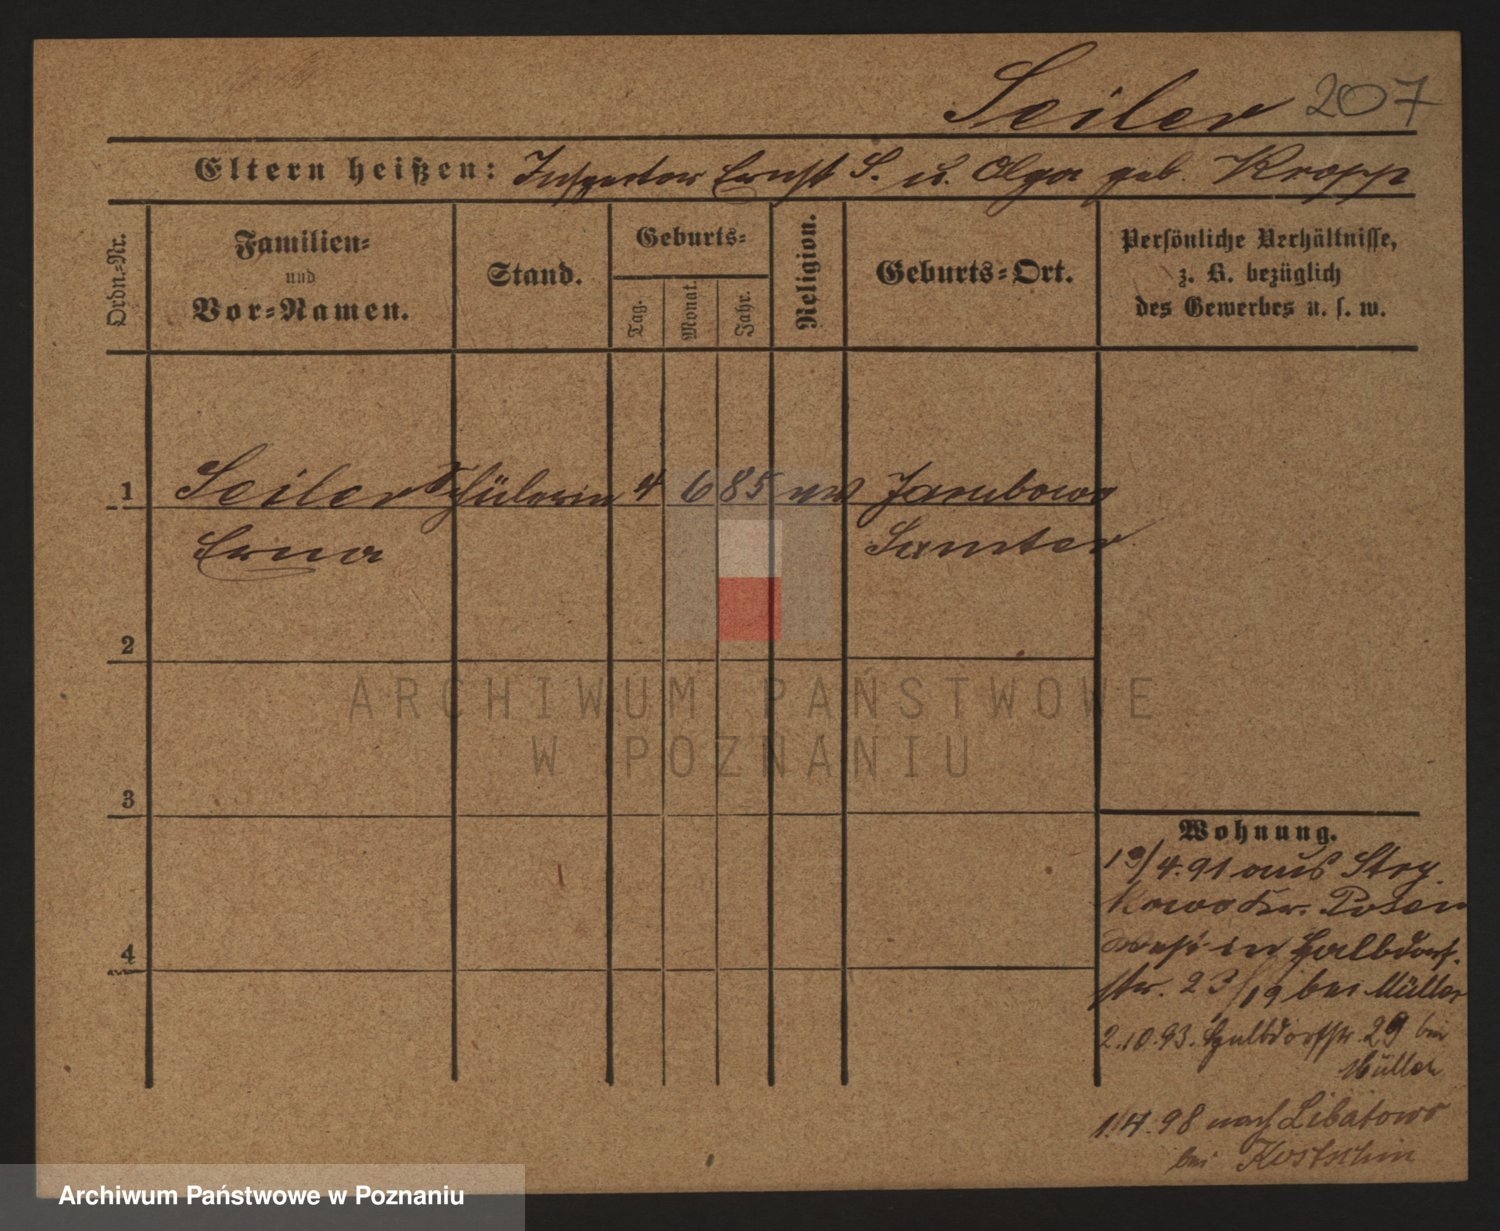 Seiler 207
Eltern heißen: Inspector Ernst S. u. Olga geb. Kropp
Ordn.-Nr.
Familien-
und
Vor-Namen.
Stand.
Geburts-
Tag.
Monat.
Jahr.
Religion.
Geburts-Ort.
Persönliche Verhältnisse,
z. B. bezüglich
des Gewerbes u. s. w.
1 Seiler Schülerin 4 6 85 ev Jarubowo
Erna Samter
2
ARCHIWUM PAŃSTWOWE
W POZNANIU
3
Wohnung.
19/4.91 aus Stry
kowo Kr. Posen
West in Halbdorf-
4
str. 23/19 bei Müller
2.10.93. Halbdorfstr. 29 bei
Müller
1/4.98 nach Libatowo
bei Kostschin
Archiwum Państwowe w Poznaniu